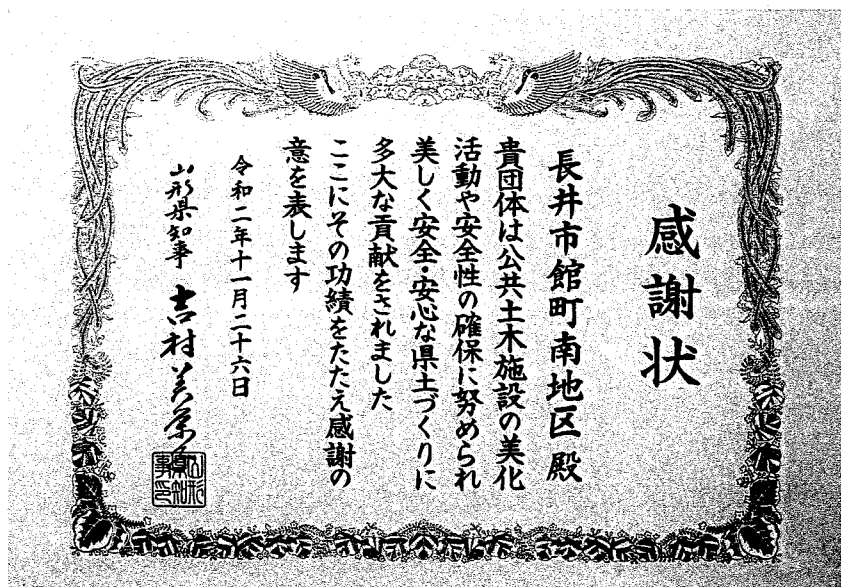 感謝状
長井市館町南地区殿
貴団体は公共土木施設の美化
活動や安全性の確保に努められ
美しく安全・安心な県土づくりに
多大な貢献をされました
ここにその功績をたたえ感謝の
意を表します
令和二年十一月二十六日
山形県知事 吉村美栄子
山形県知事印